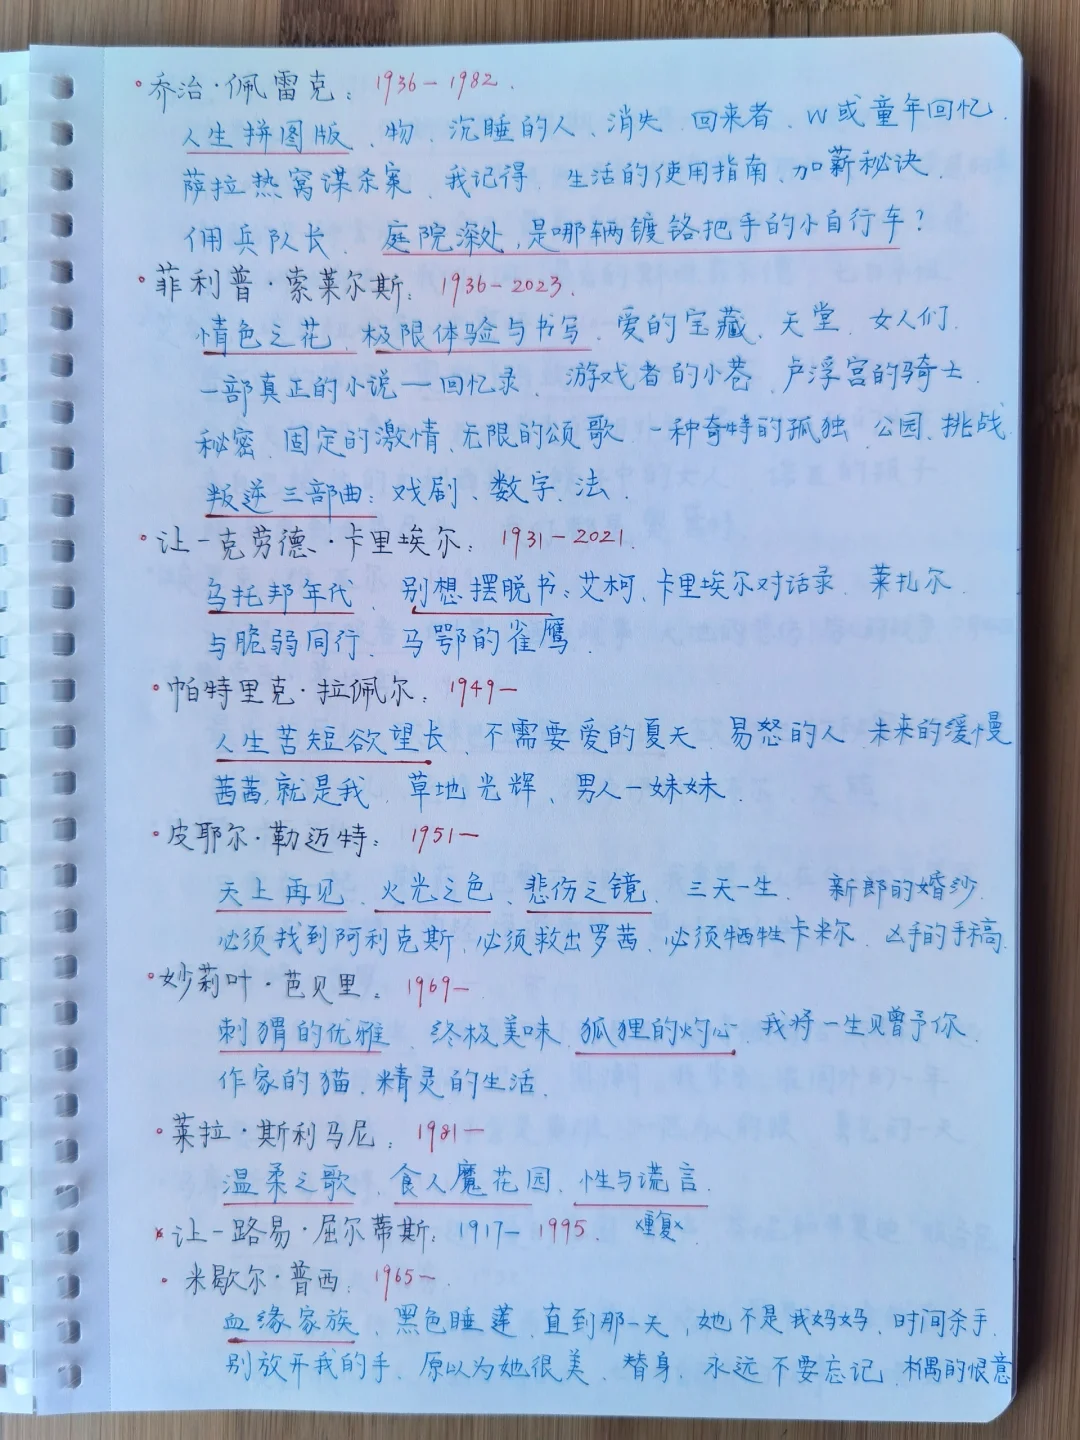 乔治·佩雷克：1936—1982.
人生拼图版、物、沉睡的人、消失、回来者、W或童年回忆、
萨拉热窝谋杀案、我记得、生活的使用指南、加薪秘诀、
佣兵队长、庭院深处,是哪辆镀铬把手的小自行车？
菲利普·索莱尔斯：1936—2023.
情色之花、极限体验与书写、爱的宝藏、天堂、女人们、
一部真正的小说—回忆录、游戏者的小巷、卢浮宫的骑士、
秘密、固定的激情、无限的颂歌、一种奇特的孤独、公园、挑战
叛逆三部曲：戏剧、数字、法.
让—克劳德·卡里埃尔：1931—2021.
乌托邦年代、别想摆脱书：艾柯、卡里埃尔对话录、莱扎尔
与脆弱同行、马鄂的雀鹰.
帕特里克·拉佩尔：1949—
人生苦短欲望长、不需要爱的夏天、易怒的人、未来的缓慢
茜茜,就是我、草地光辉、男人—妹妹.
皮耶尔·勒迈特：1951—
天上再见、火光之色、悲伤之镜、三天一生、新郎的婚纱.
必须找到阿利克斯、必须救出罗茜、必须牺牲卡米尔、凶手的手稿.
妙莉叶·芭贝里：1969—
刺猬的优雅、终极美味、狐狸的灼心、我将一生赠予你
作家的猫、精灵的生活.
莱拉·斯利马尼：1981—
温柔之歌、食人魔花园、性与谎言.
让—路易·屈尔蒂斯：1917—1995. ×重复×
米歇尔·普西：1965—
血缘家族、黑色睡莲、直到那一天、她不是我妈妈、时间杀手、
别放开我的手、原以为她很美、替身、永远不要忘记、木偶的恨意